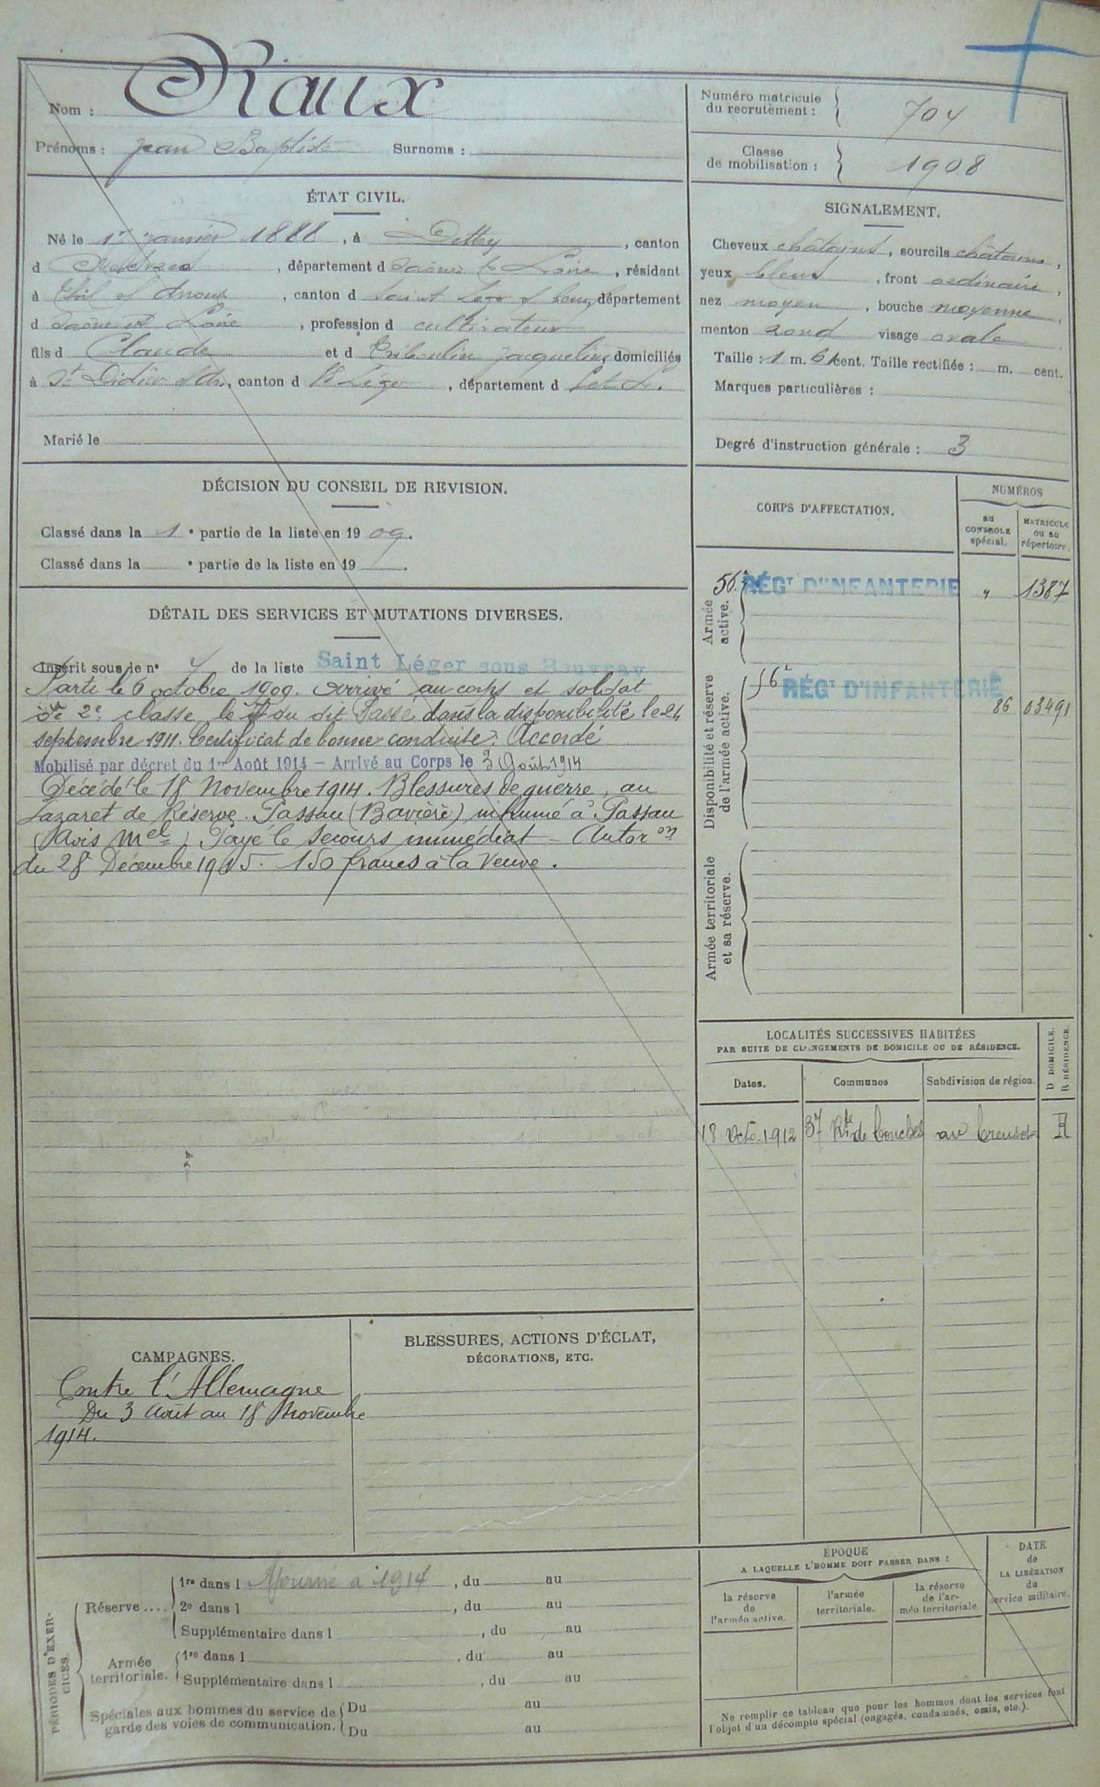 Nom : Riaux
Prénoms : Jean Baptiste Surnoms :
Numéro matricule du recrutement : 704
Classe de mobilisation : 1908
ÉTAT CIVIL.
Né le 1er janvier 1888, à Dettey, canton
d , département d Saône & Loire, résidant
à Thil s/ Arroux, canton d Saint Léger s/ Beuv., département
d Saône et Loire, profession d cultivateur
fils d Claude et d Jacqueline domiciliés
à St Didier s/ Ar., canton d St Léger, département d S. et L.
Marié le
SIGNALEMENT.
Cheveux châtains, sourcils châtains,
yeux bleus, front ordinaire,
nez moyen, bouche moyenne,
menton rond visage ovale
Taille : 1 m. 61 cent. Taille rectifiée : m. cent.
Marques particulières :
Degré d'instruction générale : 3
DÉCISION DU CONSEIL DE REVISION.
Classé dans la 1e partie de la liste en 1909.
Classé dans la e partie de la liste en 19 .
DÉTAIL DES SERVICES ET MUTATIONS DIVERSES.
Inscrit sous le n° de la liste Saint Léger sous Beuvray
Parti le 6 octobre 1909. Arrivé au corps et soldat
de 2e classe le du dit Passé dans la disponibilité le 24
septembre 1911. Certificat de bonne conduite. Accordé
Mobilisé par décret du 1er Août 1914 — Arrivé au Corps le 3 Août 1914
Décédé le 18 Novembre 1914. Blessures de guerre, au
Lazaret de Réserve Passau (Bavière) inhumé à Passau
(Avis Mel) Payé le secours immédiat - Autoron
du 28 Décembre 1915. 150 francs à la veuve.
CORPS D'AFFECTATION.
NUMÉROS
au CONTROLE spécial.
MATRICULE ou au répertoire.
Armée active.
56e RÉGT D'INFANTERIE " 1387
Disponibilité et réserve de l'armée active.
56e RÉGT D'INFANTERIE 86 03491
Armée territoriale et sa réserve.
LOCALITÉS SUCCESSIVES HABITÉES
PAR SUITE DE CHANGEMENTS DE DOMICILE OU DE RÉSIDENCE.
D DOMICILE. R RÉSIDENCE.
Dates. Communes Subdivision de région.
18 Octe 1912 37 Rte de Couches au Creusot R
CAMPAGNES.
Contre l'Allemagne
Du 3 Août au 18 Novembre
1914.
BLESSURES, ACTIONS D'ÉCLAT,
DÉCORATIONS, ETC.
PÉRIODES D'EXERCICES.
Réserve ....
1re dans l à 1914, du au
2e dans l , du au
Supplémentaire dans l , du au
Armée territoriale.
1re dans l , du au
Supplémentaire dans l , du au
Spéciales aux hommes du service de garde des voies de communication.
Du au
Du au
ÉPOQUE
A LAQUELLE L'HOMME DOIT PASSER DANS :
la réserve de l'armée active.
l'armée territoriale.
la réserve de l'armée territoriale.
DATE de LA LIBÉRATION du service militaire.
Ne remplir ce tableau que pour les hommes dont les services font
l'objet d'un décompte spécial (engagés, condamnés, omis, etc.).